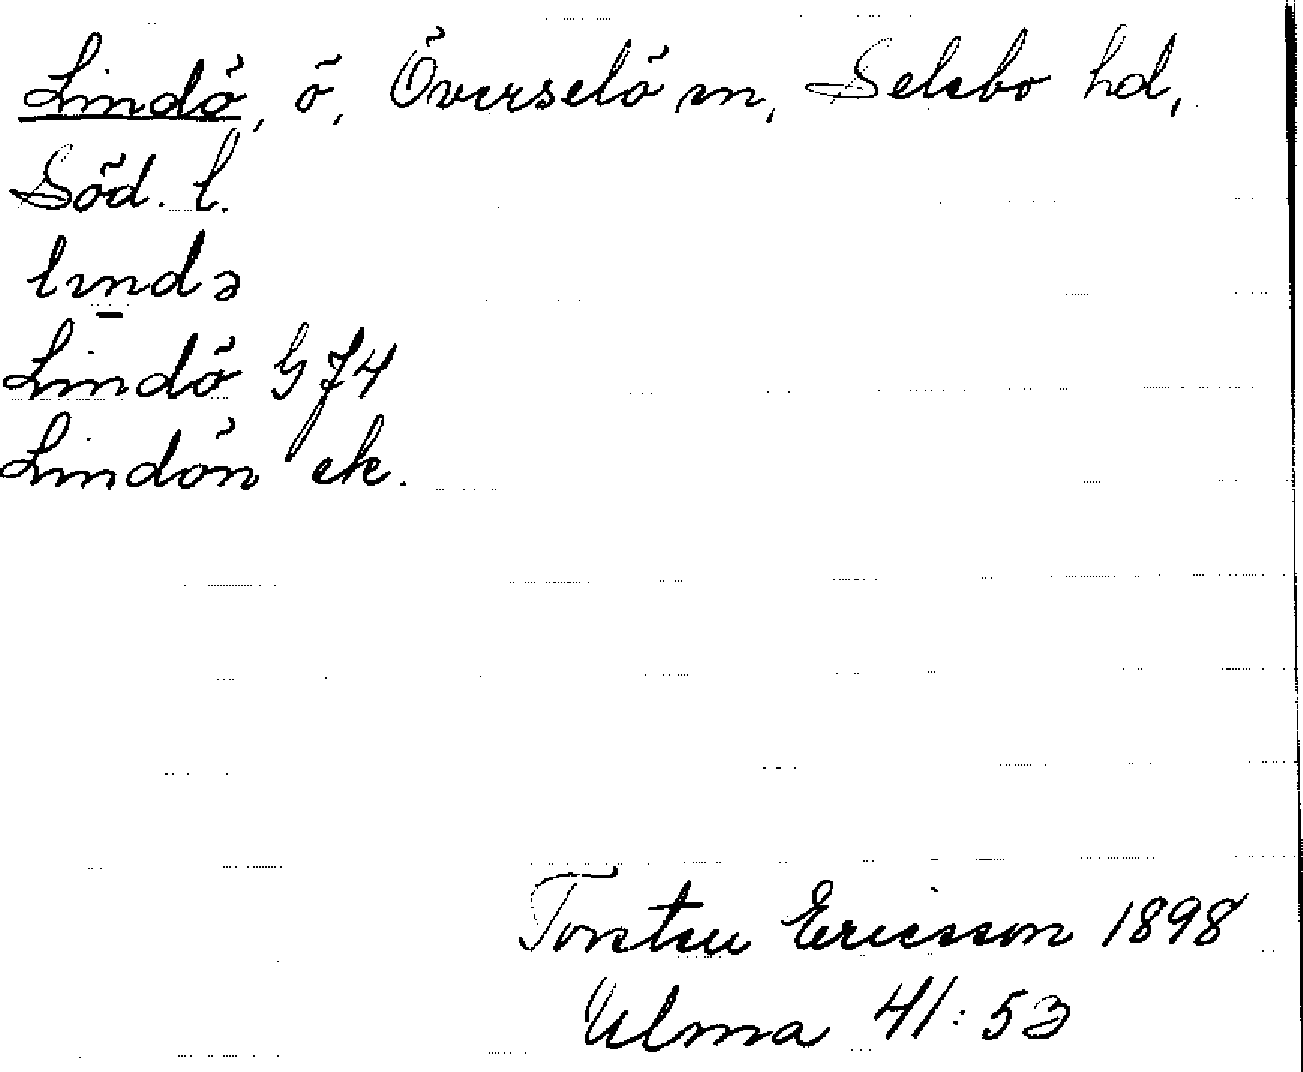 Lindö, ö, Överselö sn, Selebo hd,
Söd. l.
lındə
Lindö GJ4
Lindön ek.
Torsten Ericsson 1898
Ulma 41:53